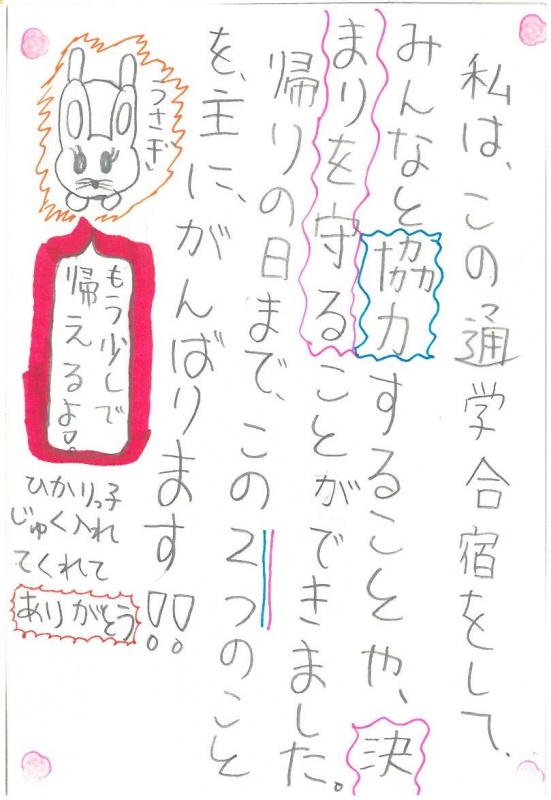 私は、この通学合宿をして、
みんなと協力することや、決
まりを守ることができました。
帰りの日まで、この2つのこと
を、主に、がんばります!!
うさぎ
もう少しで
帰えるよ!。
ひかりっ子
じゅく入れ
てくれて
ありがとう